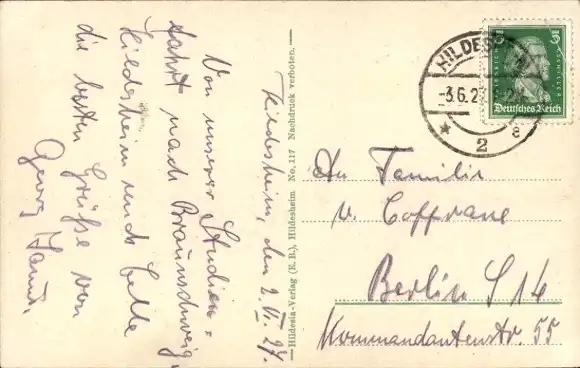 Hildesheim, den 2.VI.27.
Von unserer Studien=
fahrt nach Braunschweig,
Hildesheim und Celle
die besten Grüße von
Georg
Hildesia-Verlag (E. B.), Hildesheim No. 117 Nachdruck verboten.
HILDESHEIM
3.6.27
* 2 a
5 5
Deutsches Reich
An Familie
v. Coffrane
Berlin S 14
Kommandantenstr. 55